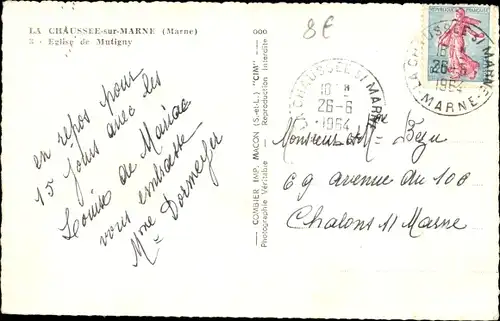 LA CHAUSSEE-sur-MARNE (Marne)
3 - Eglise de Mutigny
en repos pour
15 jours avec les
Louise de
vous embrasse
Mme
COMBIER IMP. MACON (S.-et-L.) "CIM"
Photographie Véritable Reproduction Interdite
8€
LA CHAUSSEE S/ MARNE
26-6
1964
MARNE
LA CHAUSSEE S/ MARNE
26-6
1964
Monsieur Mme
69 avenue du 106
Chalons s/ Marne